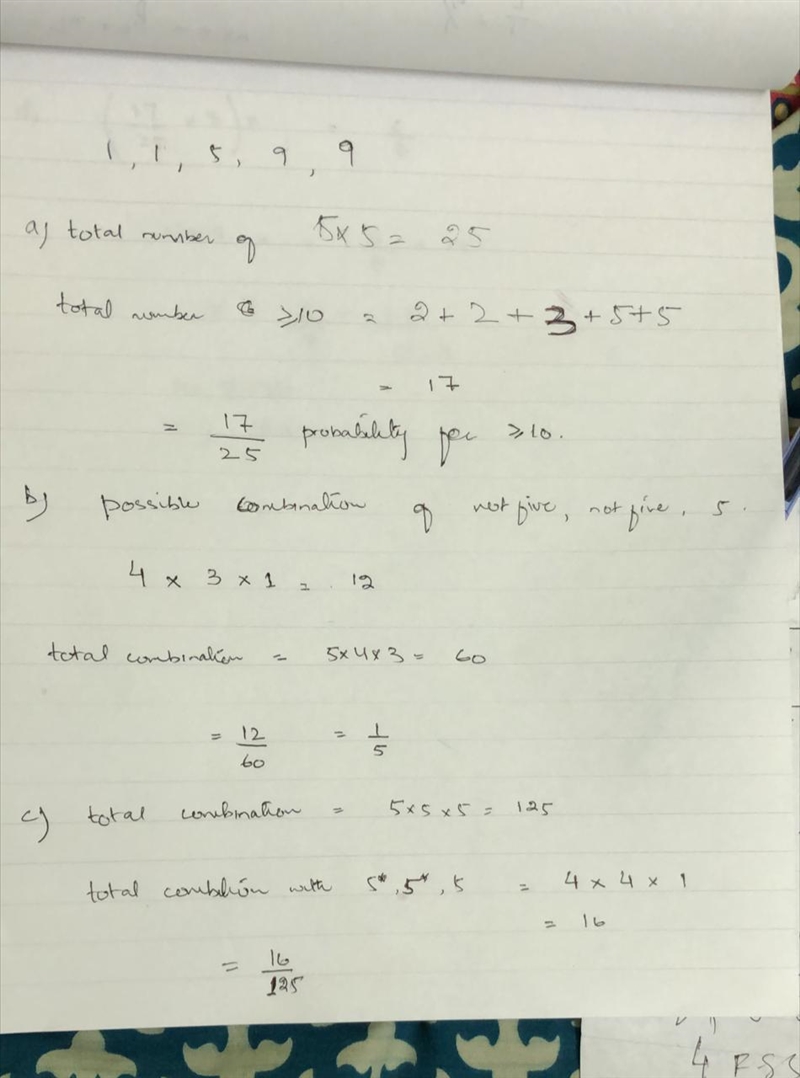 1, 1, 5, 9, 9
a) total number of 5×5 = 25
total number ≥10 = 2+2+3+5+5
= 17
= 17/25 probability for ≥10.
b) possible combination of not five, not five, 5.
4 × 3 × 1 = 12
total combination = 5×4×3 = 60
= 12/60 = 1/5
c) total combination = 5×5×5 = 125
total with 5*, 5*, 5 = 4 × 4 × 1
= 16
= 16/125